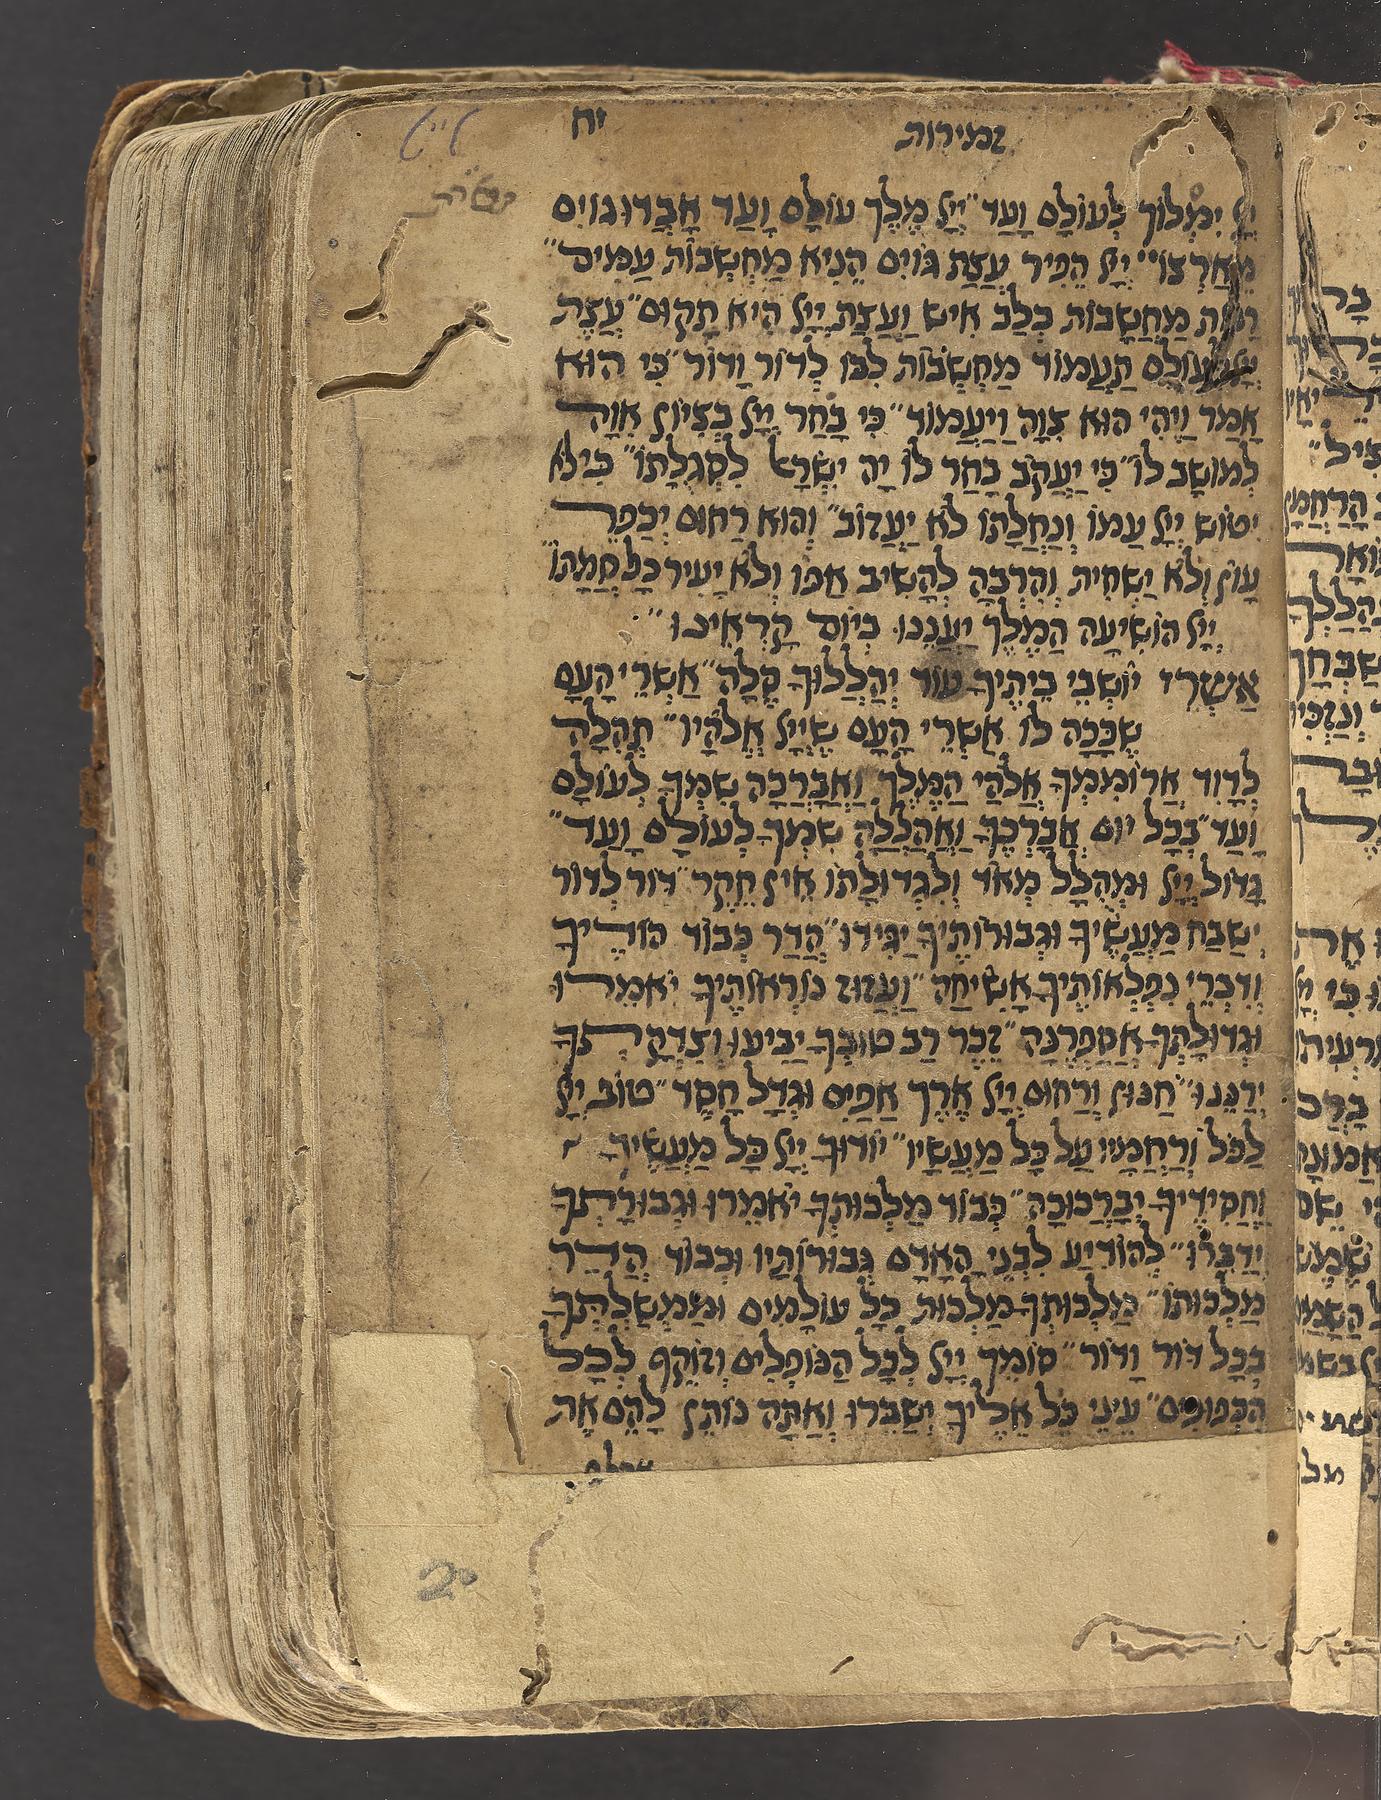 זמירות יח
ייָ יִמְלוֹךְ לְעוֹלָם וָעַד״ ייָ מֶלֶךְ עוֹלָם וָעַד אָבְדוּ גוֹיִם
מֵאַרְצוֹ״ ייָ הֵפִיר עֲצַת גּוֹיִם הֵנִיא מַחְשְׁבוֹת עַמִּים״
רַבּוֹת מַחֲשָׁבוֹת בְּלֵב אִישׁ וַעֲצַת ייָ הִיא תָקוּם״ עֲצַת
ייָ לְעוֹלָם תַּעֲמוֹד מַחְשְׁבוֹת לִבּוֹ לְדוֹר וָדוֹר״ כִּי הוּא
אָמַר וַיֶּהִי הוּא צִוָּה וַיַּעֲמוֹד״ כִּי בָחַר ייָ בְּצִיּוֹן אִוָּה
לְמוֹשָׁב לוֹ״ כִּי יַעֲקֹב בָּחַר לוֹ יָהּ יִשְׂרָאֵל לִסְגֻלָּתוֹ״ כִּי לֹא
יִטּוֹשׁ ייָ עַמּוֹ וְנַחֲלָתוֹ לֹא יַעֲזוֹב״ וְהוּא רַחוּם יְכַפֵּר
עָוֹן וְלֹא יַשְׁחִית וְהִרְבָּה לְהָשִׁיב אַפּוֹ וְלֹא יָעִיר כָּל חֲמָתוֹ״
ייָ הוֹשִׁיעָה הַמֶּלֶךְ יַעֲנֵנוּ בְיוֹם קָרְאֵינוּ״
אַשְׁרֵי יוֹשְׁבֵי בֵיתֶיךָ עוֹד יְהַלְלוּךָ סֶלָה״ אַשְׁרֵי הָעָם
שֶׁכָּכָה לּוֹ אַשְׁרֵי הָעָם שֶׁייָ אֱלֹהָיו״ תְּהִלָּה
לְדָוִד אֲרוֹמִמְךָ אֱלֹהַי הַמֶּלֶךְ וַאֲבָרְכָה שִׁמְךָ לְעוֹלָם
וָעֶד״ בְּכָל יוֹם אֲבָרְכֶךָּ וַאֲהַלְלָה שִׁמְךָ לְעוֹלָם וָעֶד״
גָּדוֹל ייָ וּמְהֻלָּל מְאֹד וְלִגְדוּלָּתוֹ אֵין חֵקֶר״ דּוֹר לְדוֹר
יְשַׁבַּח מַעֲשֶׂיךָ וּגְבוּרוֹתֶיךָ יַגִּידוּ״ הֲדַר כְּבוֹד הוֹדֶיךָ
וְדִבְרֵי נִפְלְאוֹתֶיךָ אָשִׂיחָה״ וֶעֱזוּז נוֹרְאוֹתֶיךָ יֹאמֵרוּ
וּגְדוּלָּתְךָ אֲסַפְּרֶנָּה״ זֵכֶר רַב טוּבְךָ יַבִּיעוּ וְצִדְקָתְךָ
יְרַנֵּנוּ״ חַנּוּן וְרַחוּם ייָ אֶרֶךְ אַפַּיִם וּגְדָל חָסֶד״ טוֹב ייָ
לַכֹּל וְרַחֲמָיו עַל כָּל מַעֲשָׂיו״ יוֹדוּךָ ייָ כָּל מַעֲשֶׂיךָ
וַחֲסִידֶיךָ יְבָרְכוּכָה״ כְּבוֹד מַלְכוּתְךָ יֹאמֵרוּ וּגְבוּרָתְךָ
יְדַבֵּרוּ״ לְהוֹדִיעַ לִבְנֵי הָאָדָם גְּבוּרוֹתָיו וּכְבוֹד הֲדַר
מַלְכוּתוֹ״ מַלְכוּתְךָ מַלְכוּת כָּל עוֹלָמִים וּמֶמְשַׁלְתְּךָ
בְּכָל דּוֹר וָדוֹר״ סוֹמֵךְ ייָ לְכָל הַנּוֹפְלִים וְזוֹקֵף לְכָל
הַכְּפוּפִים״ עֵינֵי כֹל אֵלֶיךָ יְשַׂבֵּרוּ וְאַתָּה נוֹתֵן לָהֶם אֶת